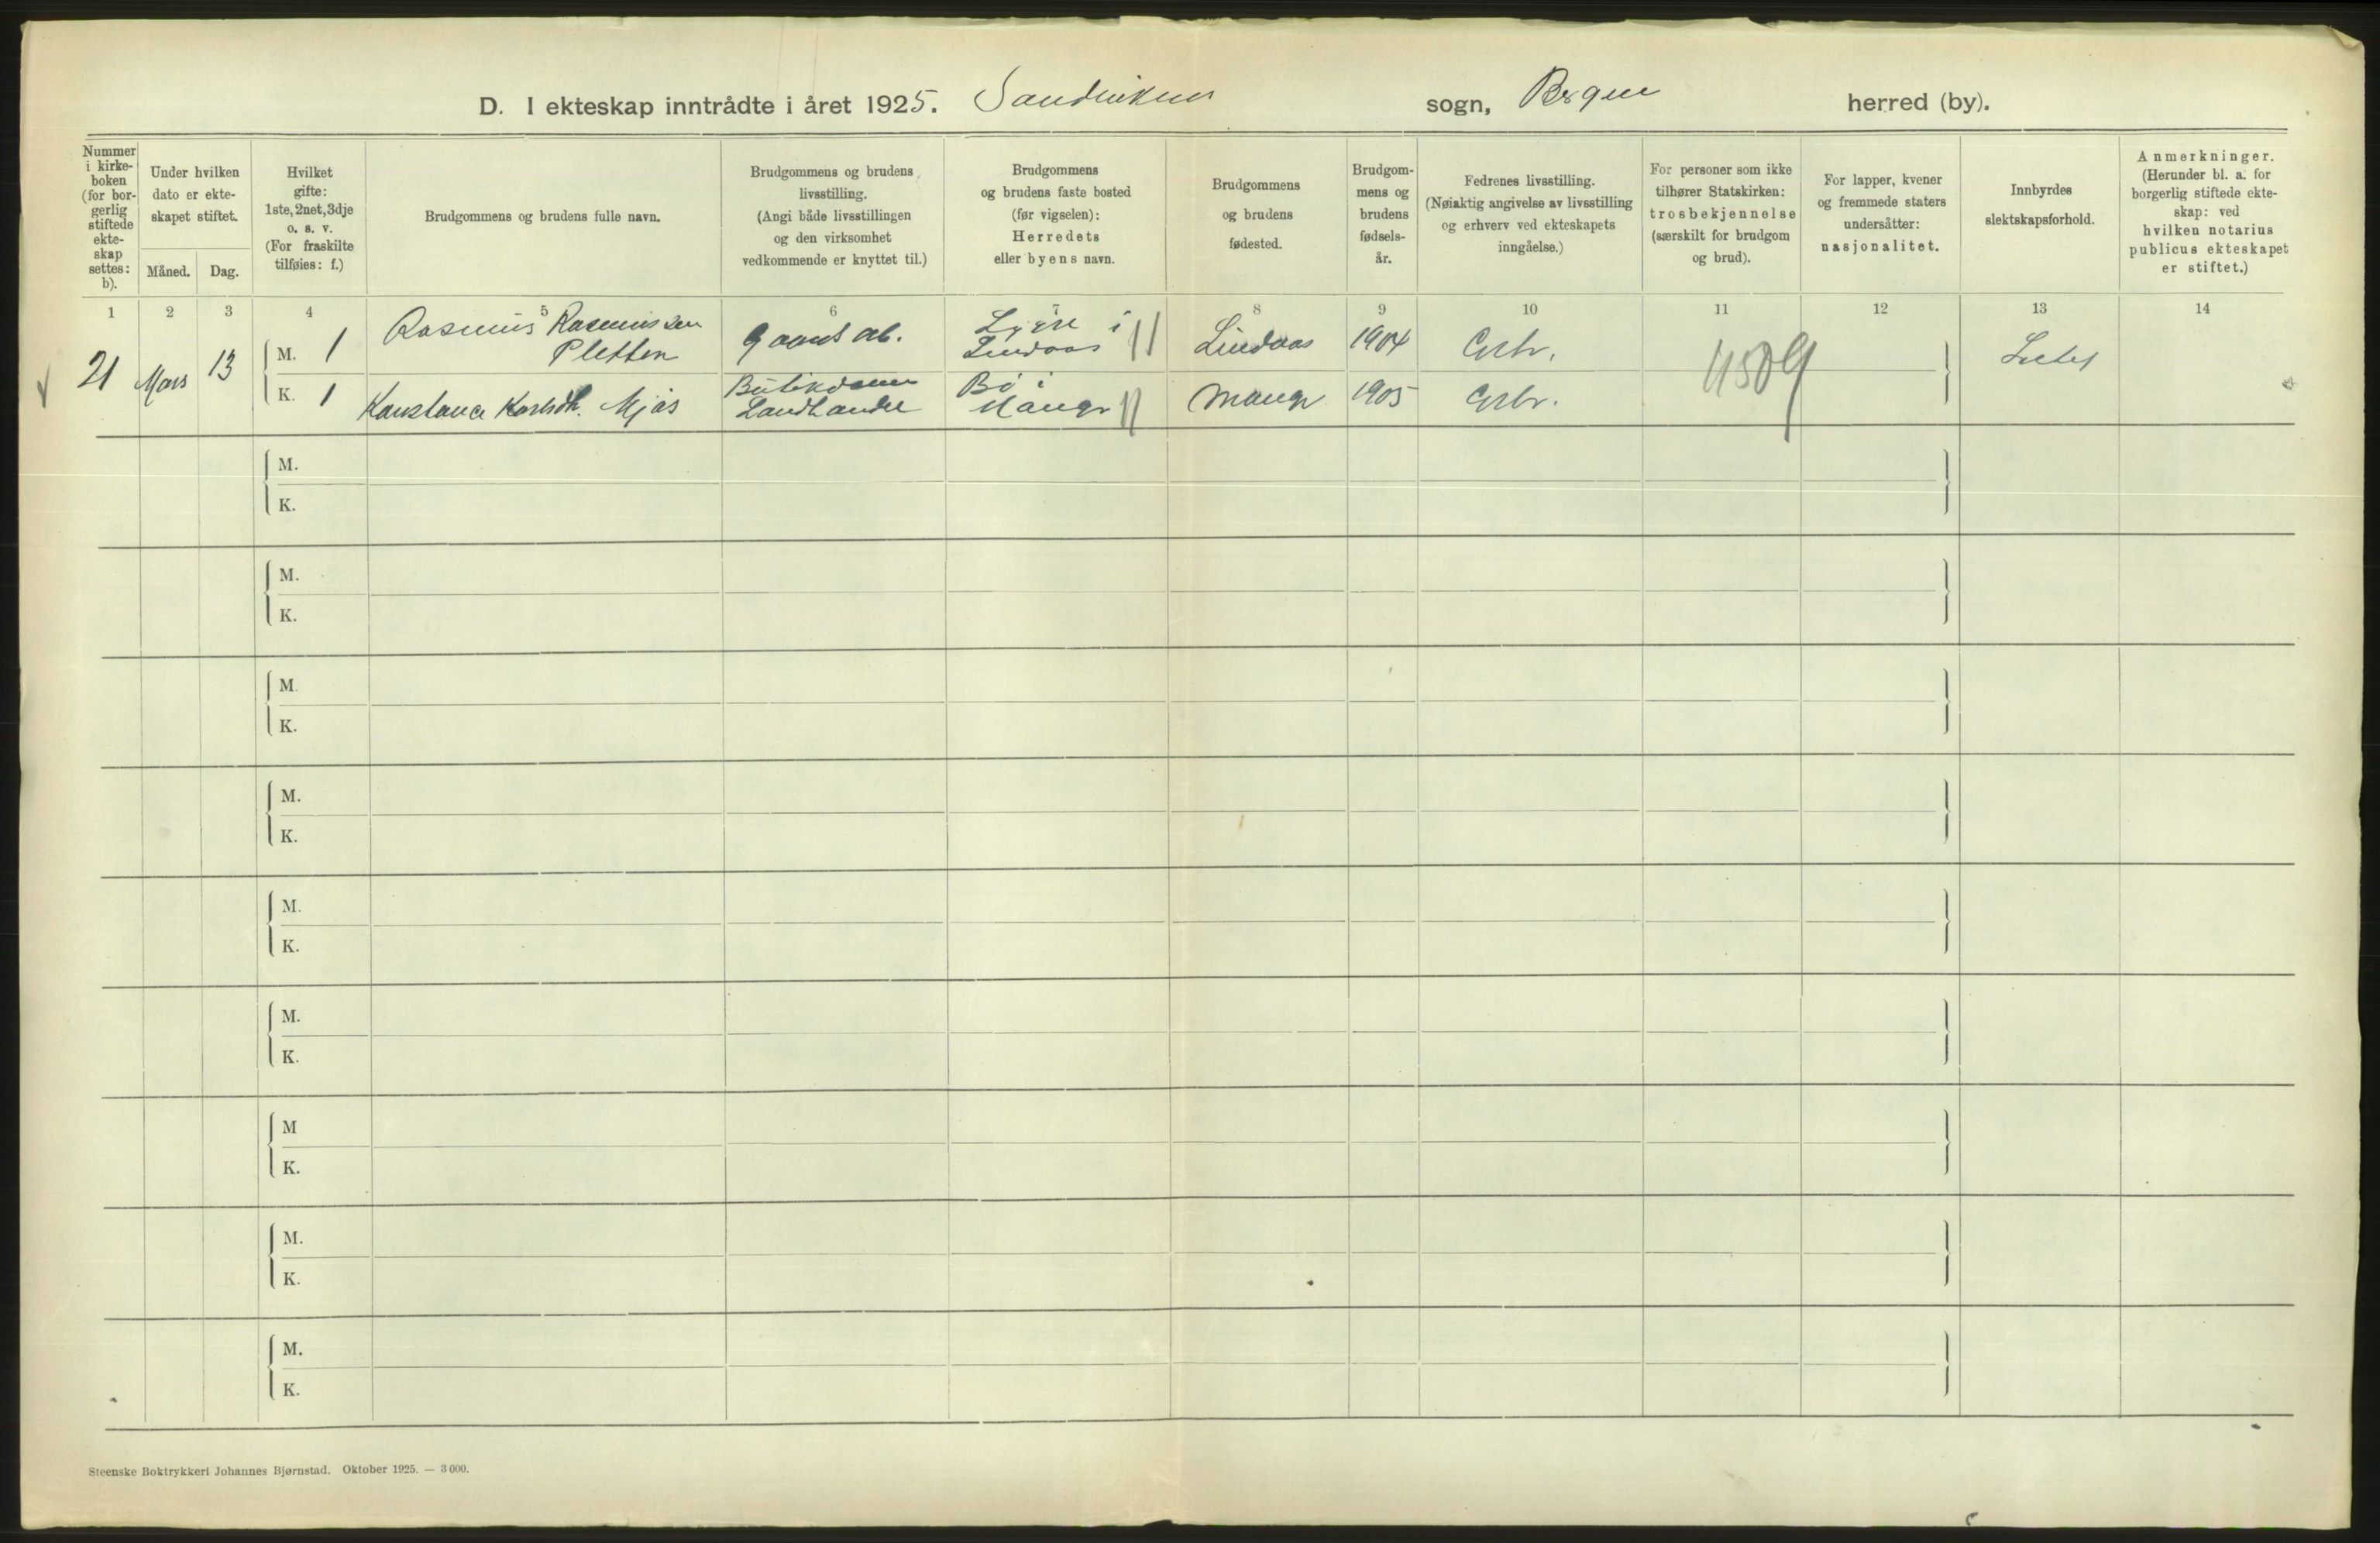 D. I ekteskap inntrådte i året 1925. Sandviken sogn, Bergen herred (by).
Nummer i kirke-boken (for bor-gerlig stiftede ekte-skap settes: b).
Under hvilken dato er ekte-skapet stiftet.
Måned. Dag.
Hvilket gifte: 1ste, 2net, 3dje o. s. v. (For fraskilte tilføies: f.)
Brudgommens og brudens fulle navn.
Brudgommens og brudens livsstilling. (Angi både livsstillingen og den virksomhet vedkommende er knyttet til.)
Brudgommens og brudens faste bosted (før vigselen): Herredets eller byens navn.
Brudgommens og brudens fødested.
Brudgom-mens og brudens fødsels-år.
Fedrenes livsstilling. (Nøiaktig angivelse av livsstilling og erhverv ved ekteskapets inngåelse.)
For personer som ikke tilhører Statskirken: trosbekjennelse (særskilt for brudgom og brud).
For lapper, kvener og fremmede staters undersåtter: nasjonalitet.
Innbyrdes slektskapsforhold.
Anmerkninger. (Herunder bl. a. for borgerlig stiftede ekte-skap: ved hvilken notarius publicus ekteskapet er stiftet.)
1 2 3 4 5 6 7 8 9 10 11 12 13 14
21 Mars 13
M. 1 Rasmus Rasmussen Pletten Gaards arb. i Lindaas Lindaas 1904 Grbr.
K. 1 Konstance Karlsdtr. Mjøs Butikdame Landhandel Bø i Manger Manger 1905 Grbr.
4509
M.
K.
M.
K.
M.
K.
M.
K.
M.
K.
M.
K.
M
K.
M.
K.
M.
K.
Steenske Boktrykkeri Johannes Bjørnstad. Oktober 1925. — 3 000.